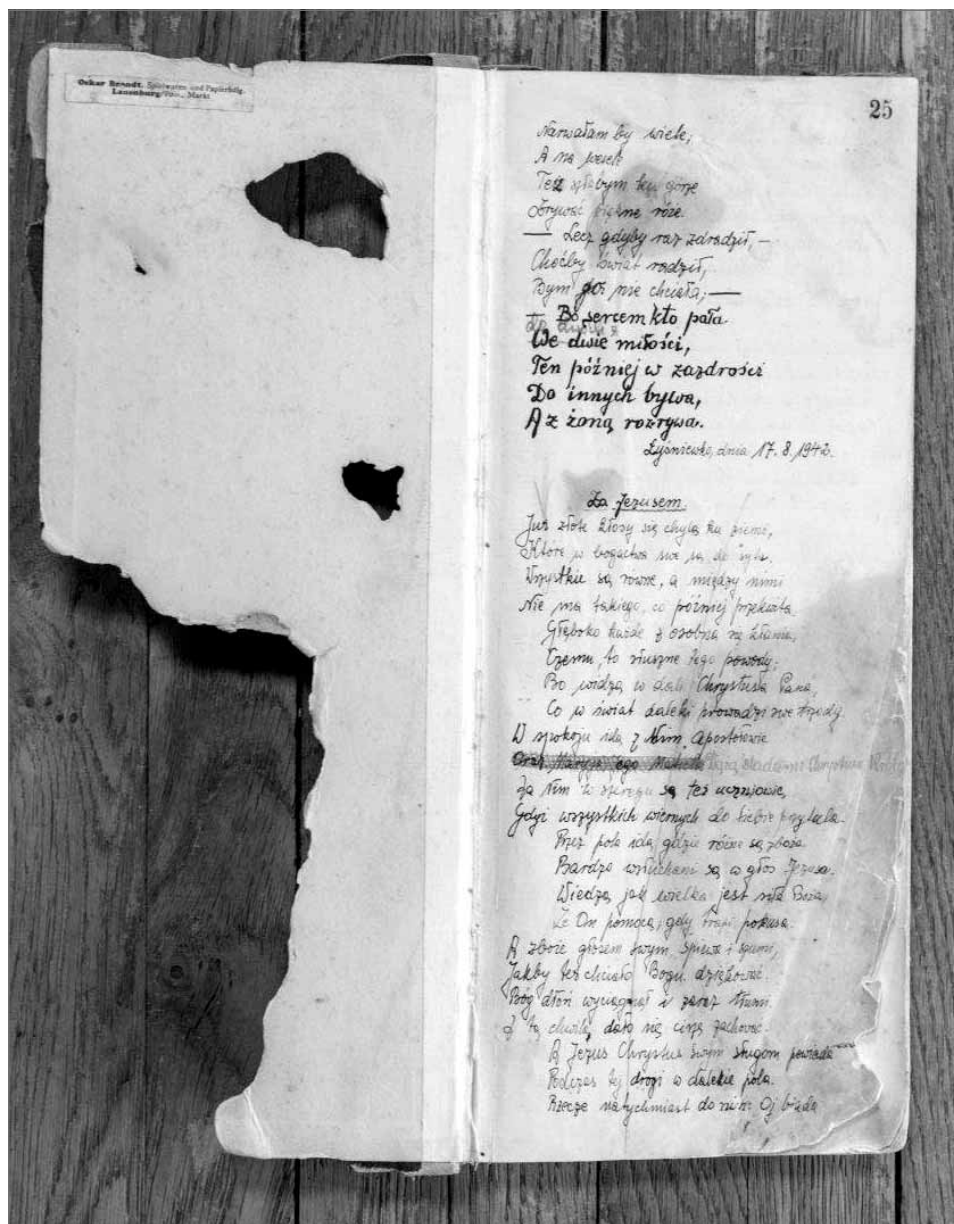 Oskar Brandt, Spielwaren und Papierhdlg.
Lauenburg/Pom., Markt
25
Narwałam by wiele,
A na
Też bym tę górę
piękne róże.
— Lecz gdyby raz zdradził, —
Choćby świat radził,
Bym go nie chciała; —
— Bo sercem kto pała
We dwie miłości,
Ten później w zazdrości
Do innych bywa,
A z żoną rozrywa.
dnia 17. 8. 1942.
Za Jezusem.
Już złote kłosy się chylą ku ziemi,
Które w bogactwa swe są do syta.
Wszystkie są równe, a między nimi
Nie ma takiego, co później przekwita.
Głęboko każde z osobna się kłania,
Czemu, to słuszne tego powody;
Bo widzą w dali Chrystusa Pana,
Co w świat daleki prowadzi swe trzody.
W spokoju idą z Nim Apostołowie
Oraz Maryja, Jego śladami Chrystusa
Za Nim w szeregu są też uczniowie,
Gdyż wszystkich wiernych do siebie
Przez pola idą, gdzie różne są zboża
Bardzo wsłuchani są w głos Jezusa.
Wiedzą jak wielka jest siła Boża,
Że On pomocą, gdy trapi pokusa.
A zboże głosem swym śpiewa i szumi,
Jakby też chciało Bogu dziękować.
Bóg dłoń wyciągnął i zaraz tłumi.
I tą chwilą dało się ciszę zachować.
A Jezus Chrystus swym sługom powiada
Podczas tej drogi w dalekie pola.
Rzecze natychmiast do nich: Oj biada